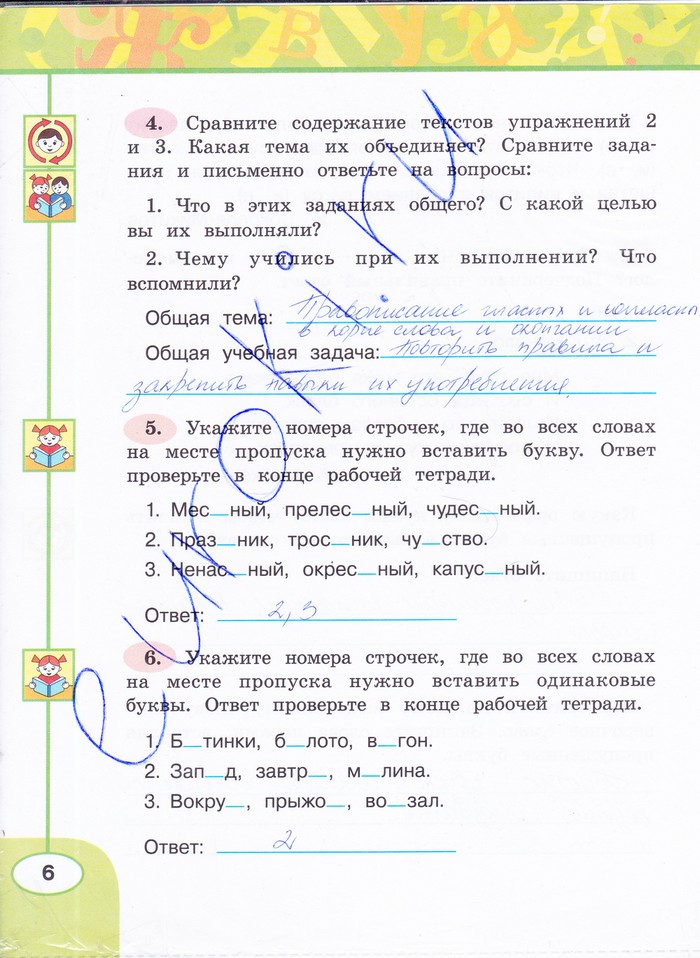 4. Сравните содержание текстов упражнений 2
и 3. Какая тема их объединяет? Сравните зада-
ния и письменно ответьте на вопросы:
1. Что в этих заданиях общего? С какой целью
вы их выполняли?
2. Чему учились при их выполнении? Что
вспомнили?
Общая тема: Правописание гласных и согласн
в корне слова и окончании
Общая учебная задача: Повторить правила и
закрепить навыки их употребления.
5. Укажите номера строчек, где во всех словах
на месте пропуска нужно вставить букву. Ответ
проверьте в конце рабочей тетради.
1. Мес_ный, прелес_ный, чудес_ный.
2. Праз_ник, трос_ник, чу_ство.
3. Ненас_ный, окрес_ный, капус_ный.
Ответ: 2,3
6. Укажите номера строчек, где во всех словах
на месте пропуска нужно вставить одинаковые
буквы. Ответ проверьте в конце рабочей тетради.
1. Б_тинки, б_лото, в_гон.
2. Зап_д, завтр_, м_лина.
3. Вокру_, прыжо_, во_зал.
Ответ: 2
6
eurok.ru